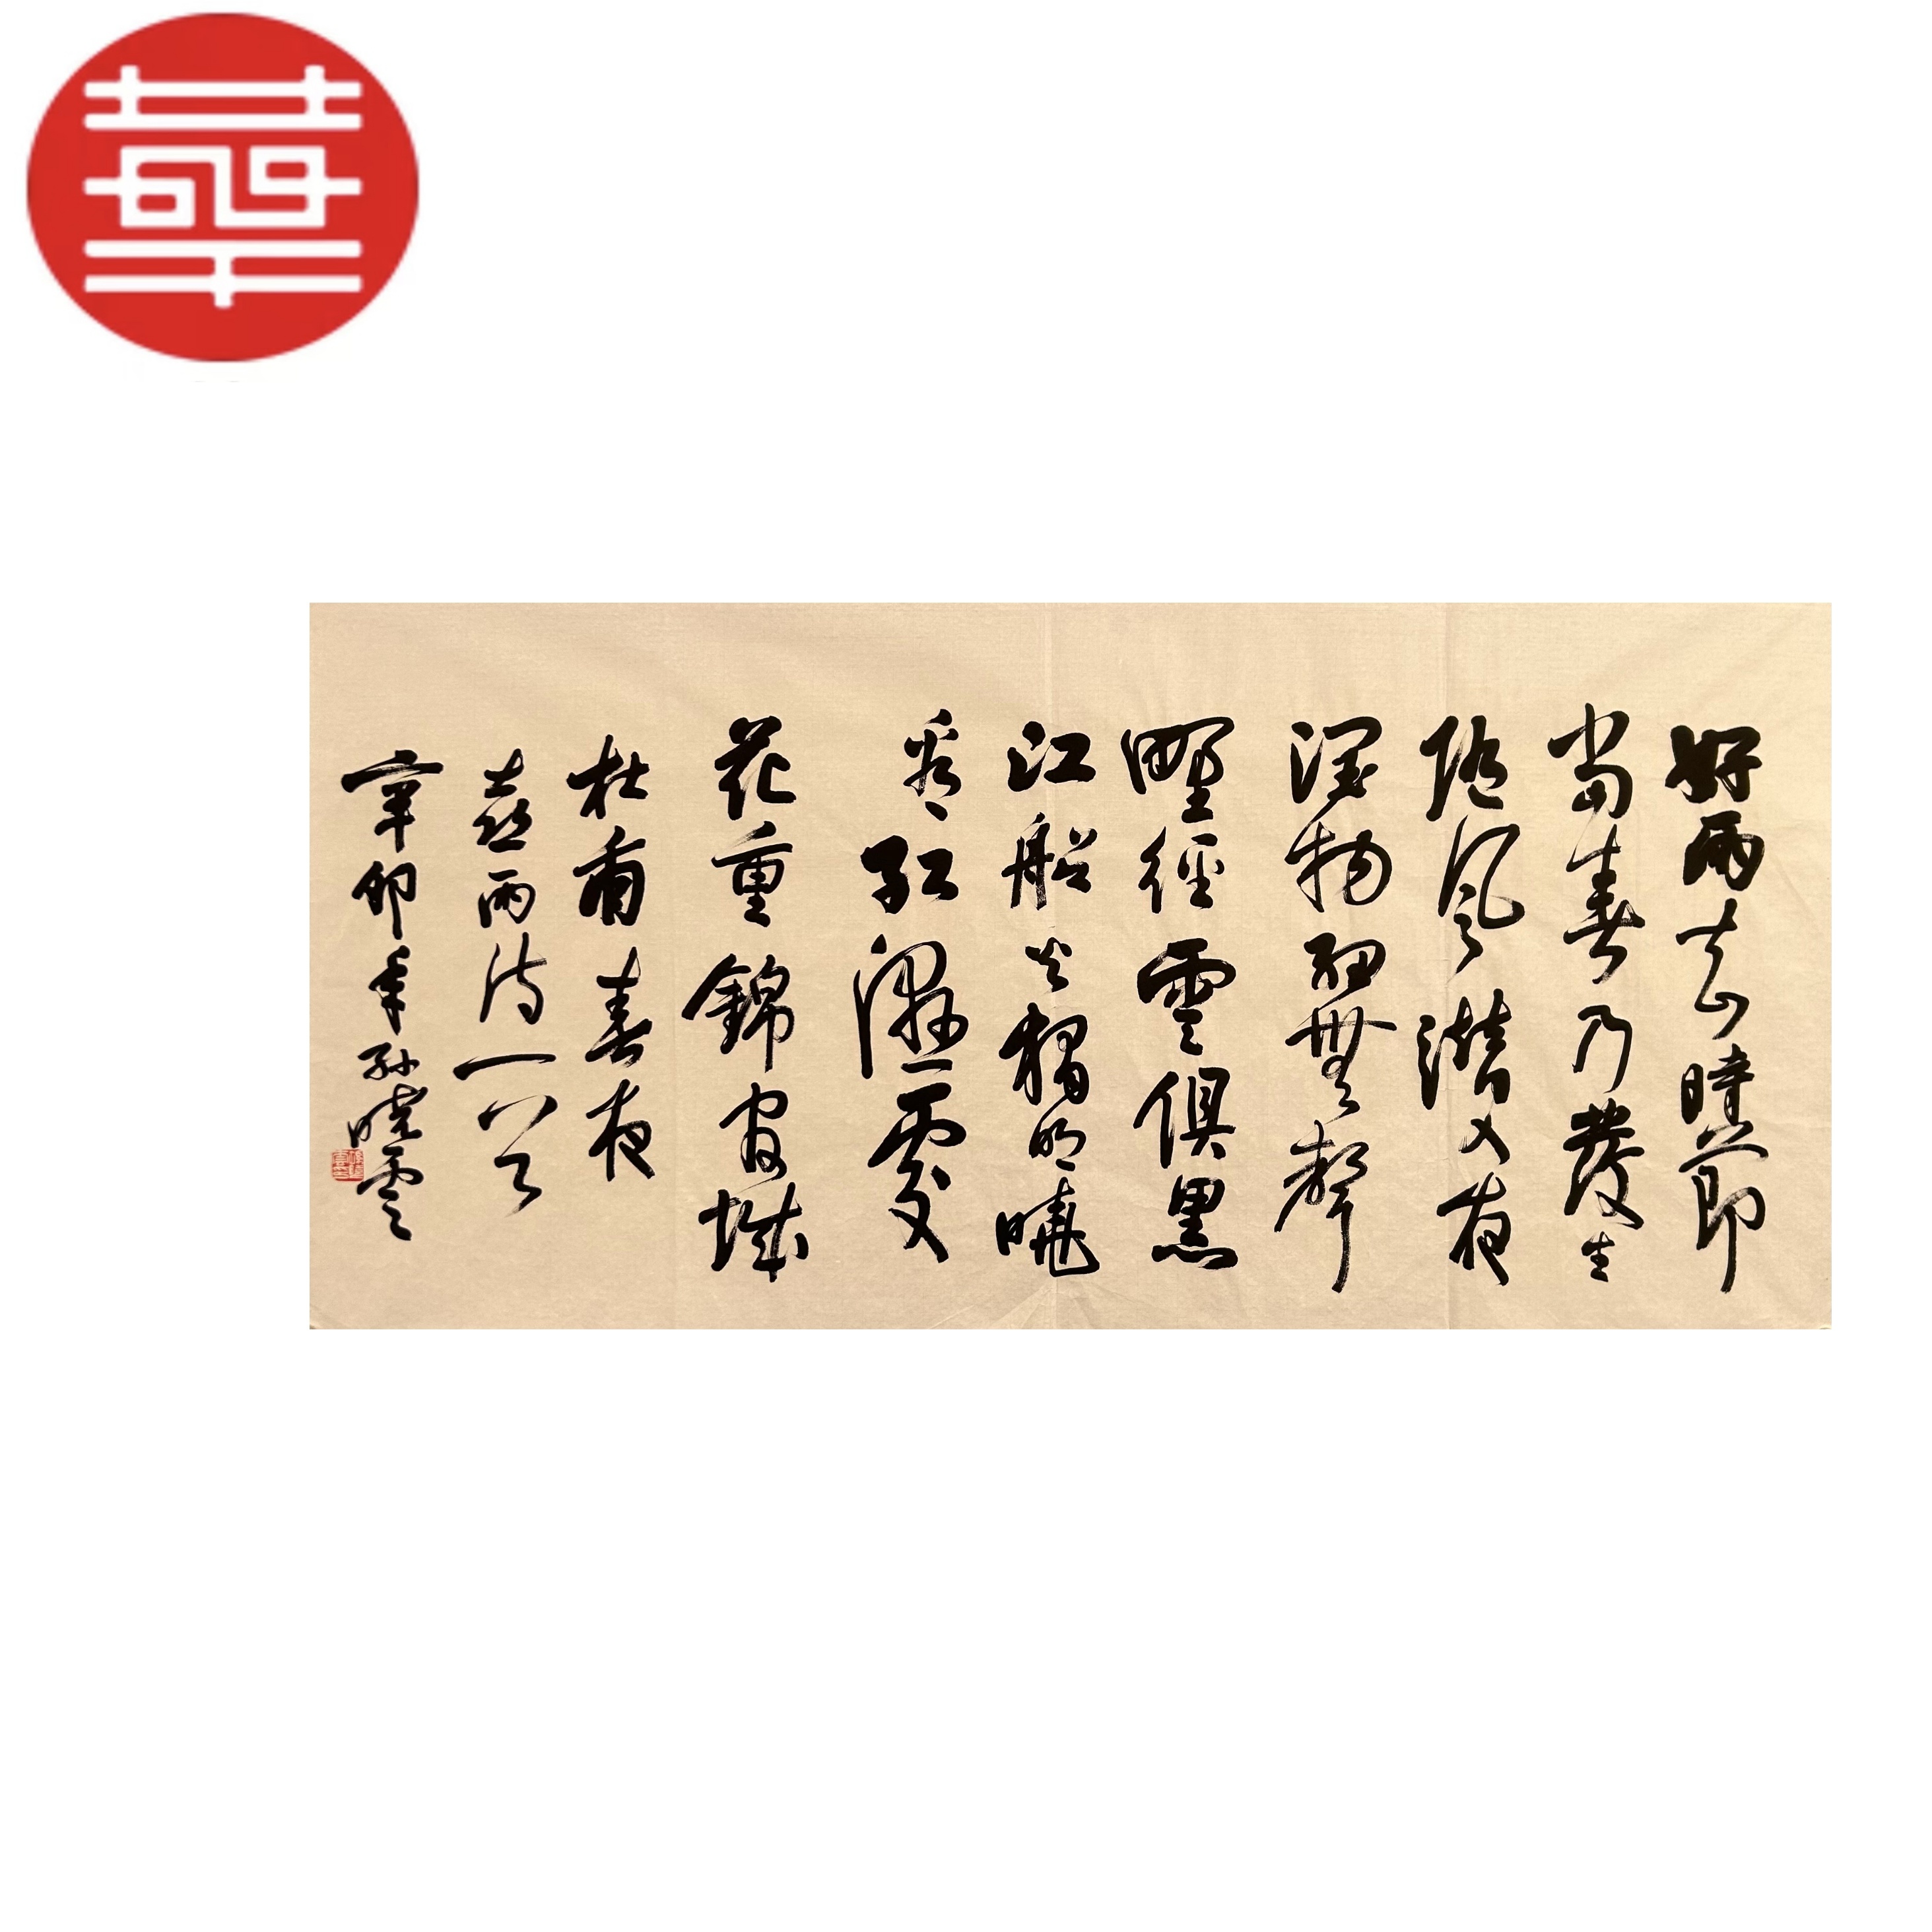 華
好雨知時節
當春乃發生
隨風潛入夜
潤物細無聲
野徑雲俱黑
江船火獨明曉
看紅濕處
花重錦官城
杜甫春夜
喜雨詩一首
辛卯年孫曉雲